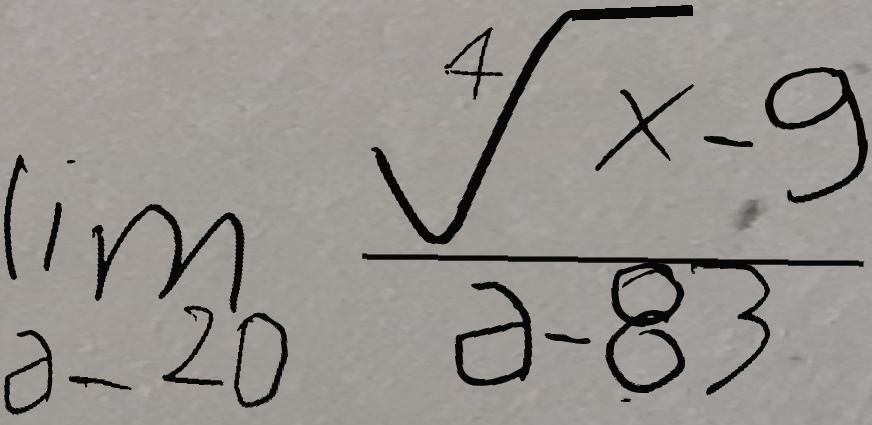 \lim_{a-20} \frac{\sqrt[4]{x-9}}{a-83}